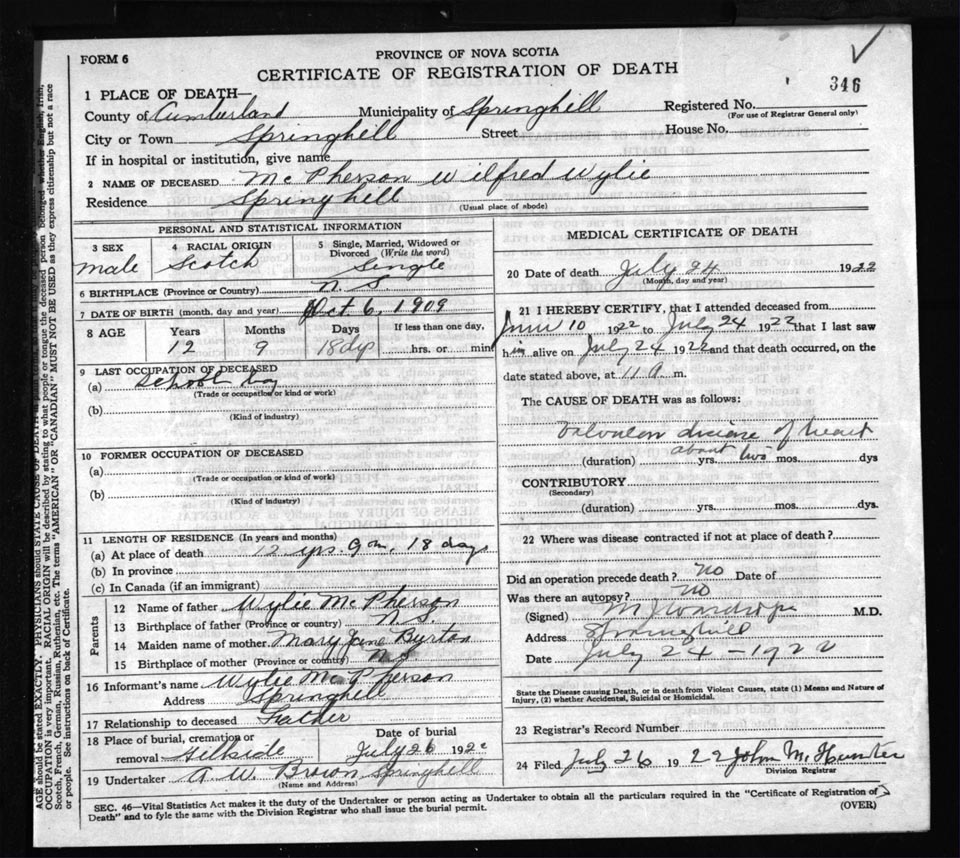 FORM 6
PROVINCE OF NOVA SCOTIA
CERTIFICATE OF REGISTRATION OF DEATH
346
1 PLACE OF DEATH—
County of Cumberland Municipality of Springhill Registered No.
(For use of Registrar General only)
City or Town Springhill Street House No.
If in hospital or institution, give name
2 NAME OF DECEASED McPherson Wilfred Wylie
Residence Springhill
(Usual place of abode)
PERSONAL AND STATISTICAL INFORMATION
3 SEX 4 RACIAL ORIGIN 5 Single, Married, Widowed or Divorced (Write the word)
male Scotch Single
6 BIRTHPLACE (Province or Country) N. S
7 DATE OF BIRTH (month, day and year) Oct 6, 1909
8 AGE Years Months Days If less than one day,
12 9 18 dys hrs. or min
9 LAST OCCUPATION OF DECEASED
(a) School boy
(Trade or occupation or kind or work)
(b)
(Kind of industry)
10 FORMER OCCUPATION OF DECEASED
(a)
(Trade or occupation or kind or work)
(b)
(Kind of industry)
11 LENGTH OF RESIDENCE (In years and months)
(a) At place of death 12 yrs. 9 m, 18 days
(b) In province
(c) In Canada (if an immigrant)
Parents
12 Name of father Wylie McPherson
13 Birthplace of father (Province or country) N. S.
14 Maiden name of mother Mary Jane Burton
15 Birthplace of mother (Province or country) N. S.
16 Informant's name Wylie McPherson
Address Springhill
17 Relationship to deceased Father
18 Place of burial, cremation or removal Hillside Date of burial July 26 192
19 Undertaker A. W. Brown Springhill
(Name and Address)
MEDICAL CERTIFICATE OF DEATH
20 Date of death July 24 1922
(Month, day and year)
21 I HEREBY CERTIFY, that I attended deceased from
June 10 1922 to July 24 1922 that I last saw
him alive on July 24 1922 and that death occurred, on the
date stated above, at 11 a m.
The CAUSE OF DEATH was as follows:
disease of heart
(duration) about two yrs. mos. dys
CONTRIBUTORY
(Secondary)
(duration) yrs. mos. dys.
22 Where was disease contracted if not at place of death?
Did an operation precede death? no Date of
Was there an autopsy? no
(Signed) M J Wardrope M.D.
Address Springhill
Date July 24 - 1922
State the Disease causing Death, or in death from Violent Causes, state (1) Means and Nature of
Injury, (2) whether Accidental, Suicidal or Homicidal.
23 Registrar's Record Number
24 Filed July 26 1922 John M. Hunter
Division Registrar
SEC. 46—Vital Statistics Act makes it the duty of the Undertaker or person acting as Undertaker to obtain all the particulars required in the "Certificate of Registration of
Death" and to fyle the same with the Division Registrar who shall issue the burial permit.
(OVER)
AGE should be stated EXACTLY. PHYSICIANS should STATE CAUSE OF DEATH
OCCUPATION is very important. RACIAL ORIGIN will be described by stating to what people or tongue the deceased person belonged whether English, Irish,
Scotch, French, German, Russian, Ruthenian, etc. The terms "AMERICAN" OR "CANADIAN" MUST NOT BE USED as they express citizenship but not a race
or people. See instructions on back of Certificate.